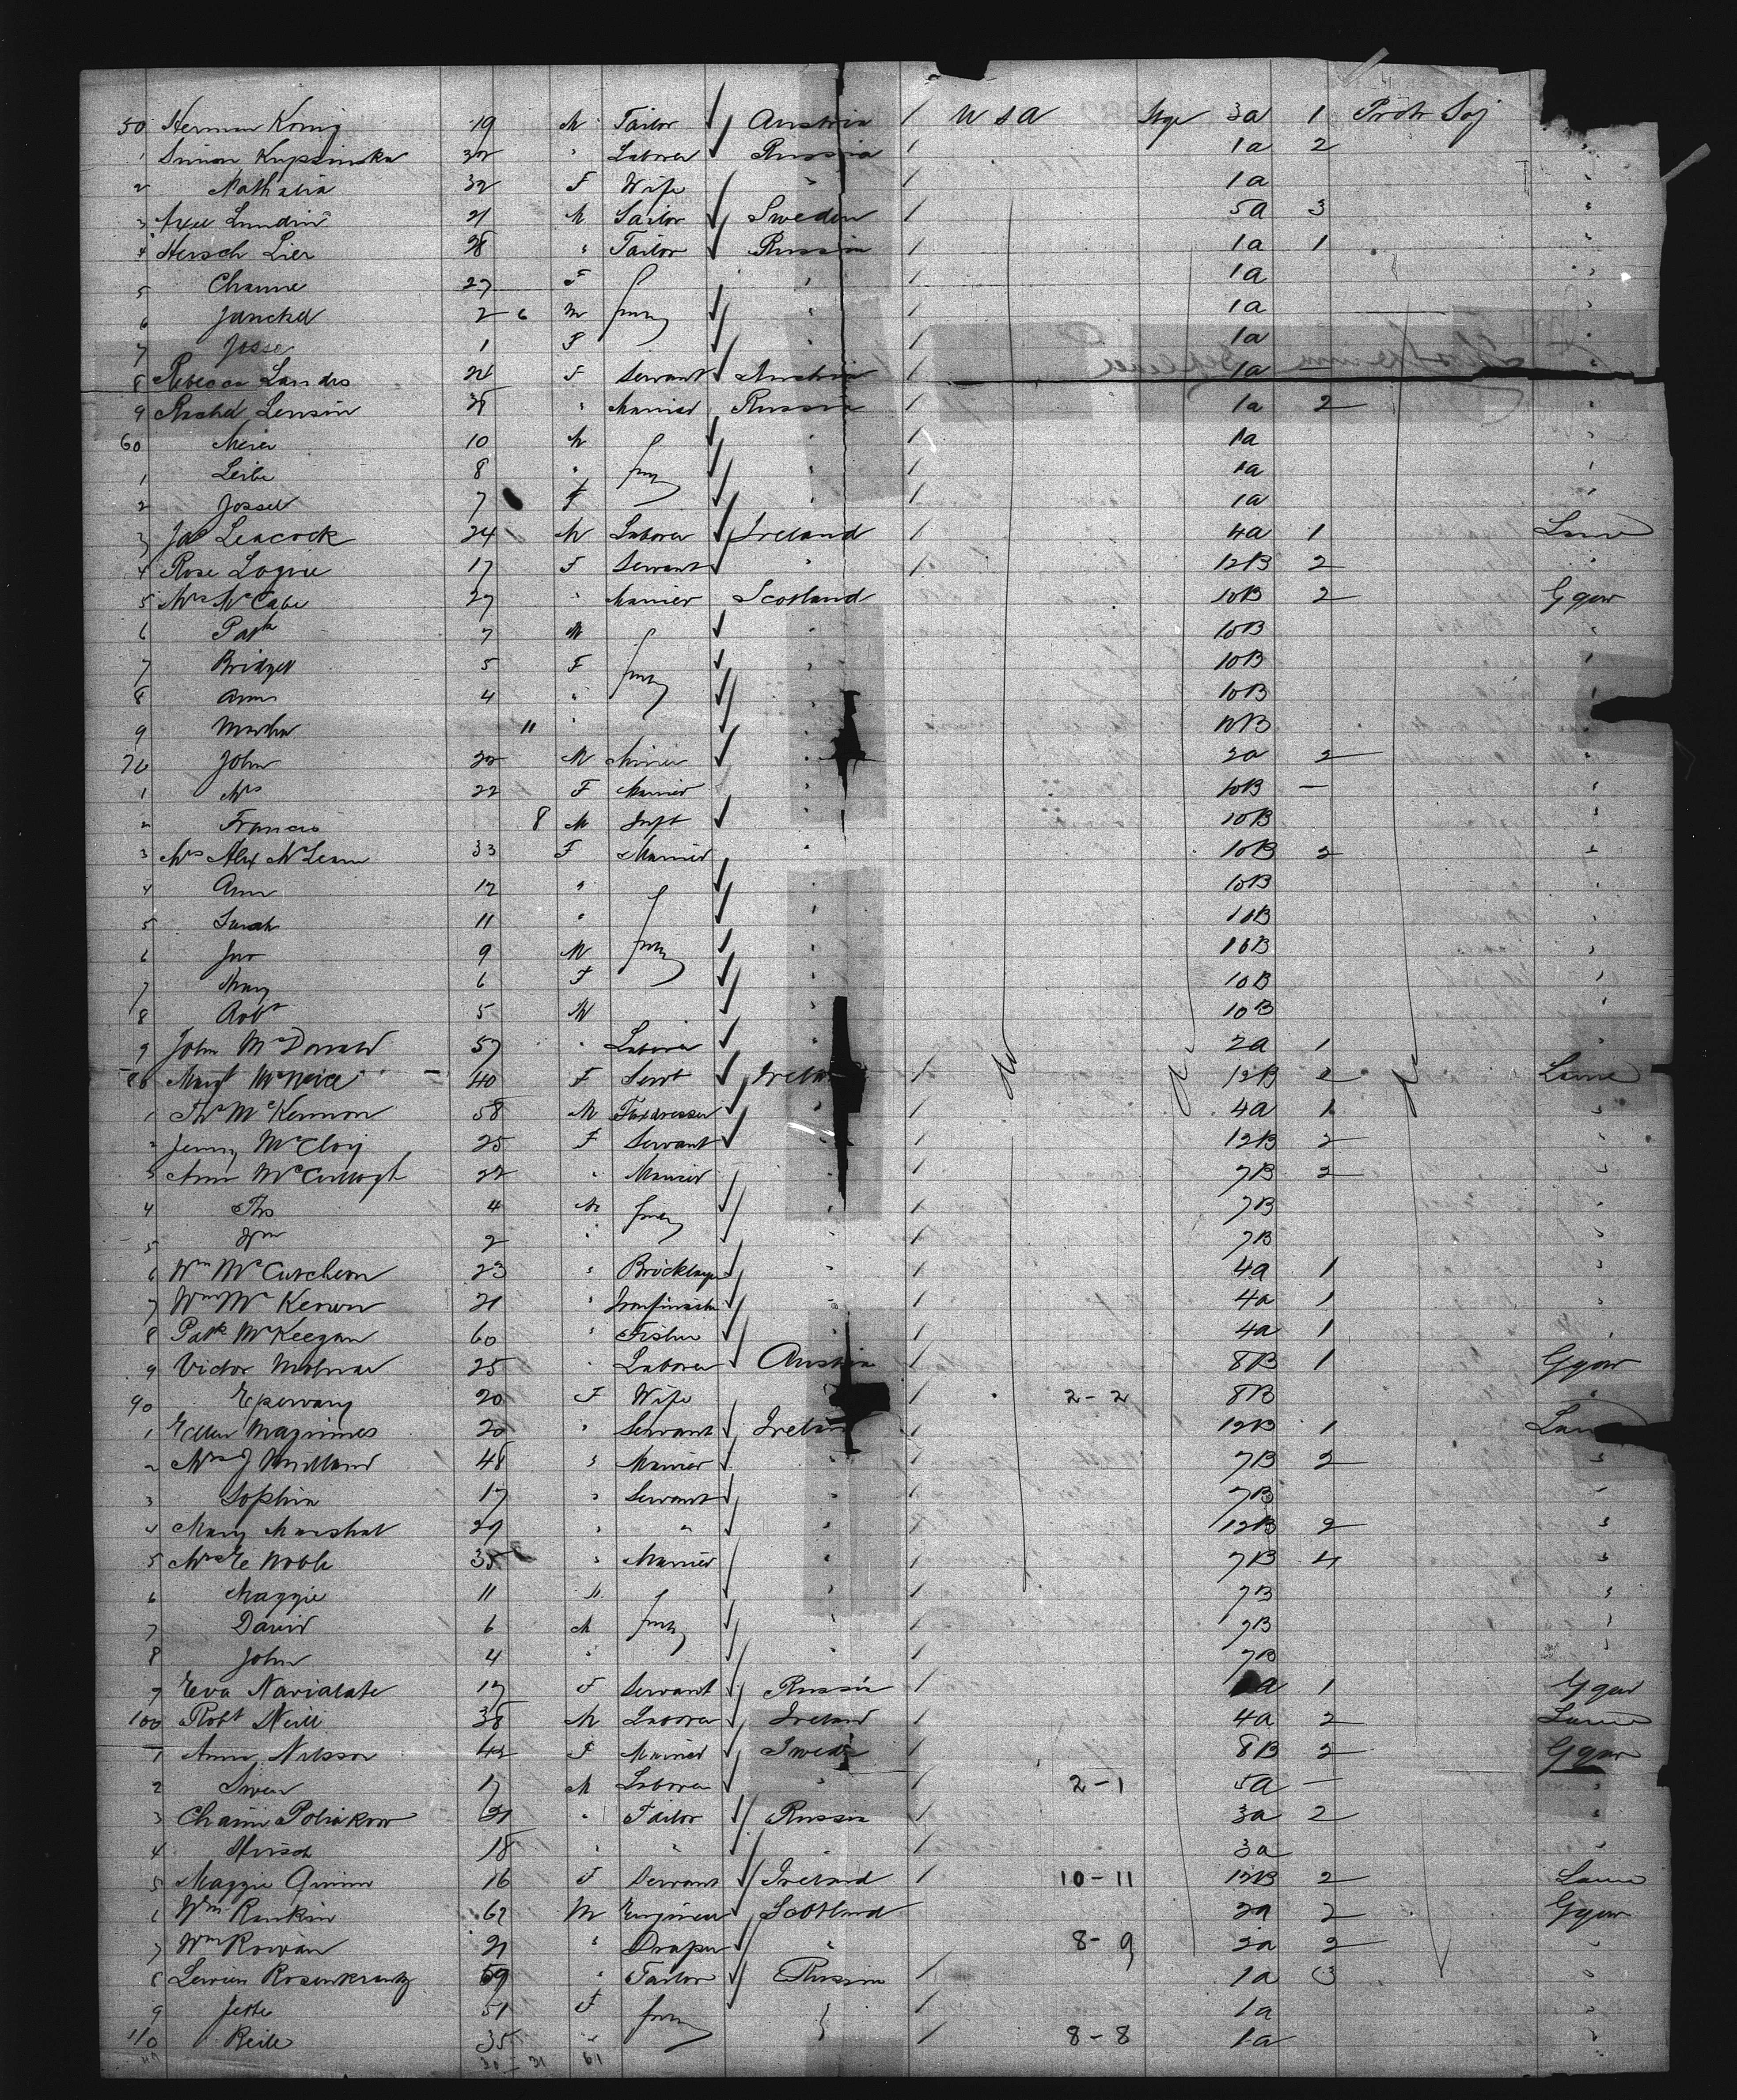 50 Herman König 19 M Tailor Austria / U S A Stge 3a 1 Protr Soj
1 Simon Kupsinska 32 " Laborer Russia / 1a 2 "
2 Nathalia 32 F Wife " / 1a "
3 Axel Lundin 21 M Sailor Sweden / 5a 3 "
4 Hersch Lier 28 " Tailor Russia / 1a 1 "
5 Channe 27 F " / 1a "
6 Janckel 2 6 M fmy " / 1a "
7 Josse 1 F " / 1a "
8 Rebecca Landes F Servant Austria / 1a — "
9 Rachel Lensin " Married Russia / 1a 2 "
60 Meier 10 M / 1a "
1 Leibe 8 " fmy / 1a "
2 Jossel 7 F " / 1a "
3 Jas Leacock 24 M Laborer Ireland / 4a 1 Larne
4 Rose Logue 17 F Servant " / 12B 2 "
5 Mrs McCabe 27 " Married Scotland 10B 2 Ggow
6 Patk 7 M " 10B "
7 Bridget 5 F fmy " 10B "
8 Ann 4 " " 10B "
9 Martha 11 " 10B
70 John 22 M Miner " 2a 2 "
1 Mrs 22 F Married " 10B — "
2 Francis 8 M Inft " 10B "
3 Mrs Alex McLean 33 F Married " 10B 2 "
4 Ann 12 " " 10B "
5 Sarah 11 " " 10B "
6 Jno 9 M fmy " 10B "
7 Mary 6 F " 10B "
8 Robt 5 M " 10B "
9 John McDonald 57 " Laborer " 2a 1 "
80 Margt McNeice 40 F Servt Ireland / 12B 2 Larne
1 Ths McKernnon 58 M Flaxdresser " / 4a 1 "
2 Jenny McCloy 25 F Servant " / 12B 2 "
3 Ann McCullogh 22 " Married " / 7B 2 "
4 Ths 4 M fmy " / 7B "
5 Wm 2 " " / 7B "
6 Wm McCutcheon 23 " Bricklayer " / 4a 1 "
7 Wm McKeown 21 " Ironfinisher " / 4a 1 "
8 Patk McKeegan 60 " Fisher " / 4a 1 "
9 Victor Molnar 25 " Laborer Austria / 8B 1 Ggow
90 20 F Wife / 2-2 8B "
1 Ellen Maginnes 20 " Servant Ireland / 12B 1 Larne
2 Mrs J Midland 48 " Married " / 7B 2 "
3 Sophia 17 " Servant " / 7B "
4 Mary Marshal 29 " " " / 12B 2 "
5 Mrs E Noble 35 " Married " / 7B 4 "
6 Maggie 11 " " / 7B "
7 David 6 M fmy " / 7B "
8 John 4 " " / 7B "
9 Eva 17 F Servant Russia / a 1 Ggow
100 Robt Neill 38 M Laborer Ireland / 4a 2 Larne
1 Anna Nilsson 42 F Married Sweden / 8B 2 Ggow
2 Swen 17 M Laborer " / 2-1 5a — "
3 Chaim Poliakow " Tailor Russia / 3a 2 "
4 Hirsch 18 " " " / 3a "
5 Maggie Quinn 16 F Servant Ireland / 10-11 12B 2 Larne
6 Wm Rankin 62 M Engineer Scotland 2a 2 Ggow
7 Wm Rowan 21 " Draper " 8-9 2a 2 "
8 Rosenkrantz 59 " Tailor Russia / 1a 3 "
9 Jette 51 F fmy " / 1a "
110 Reile 35 " " / 8-8 1a "